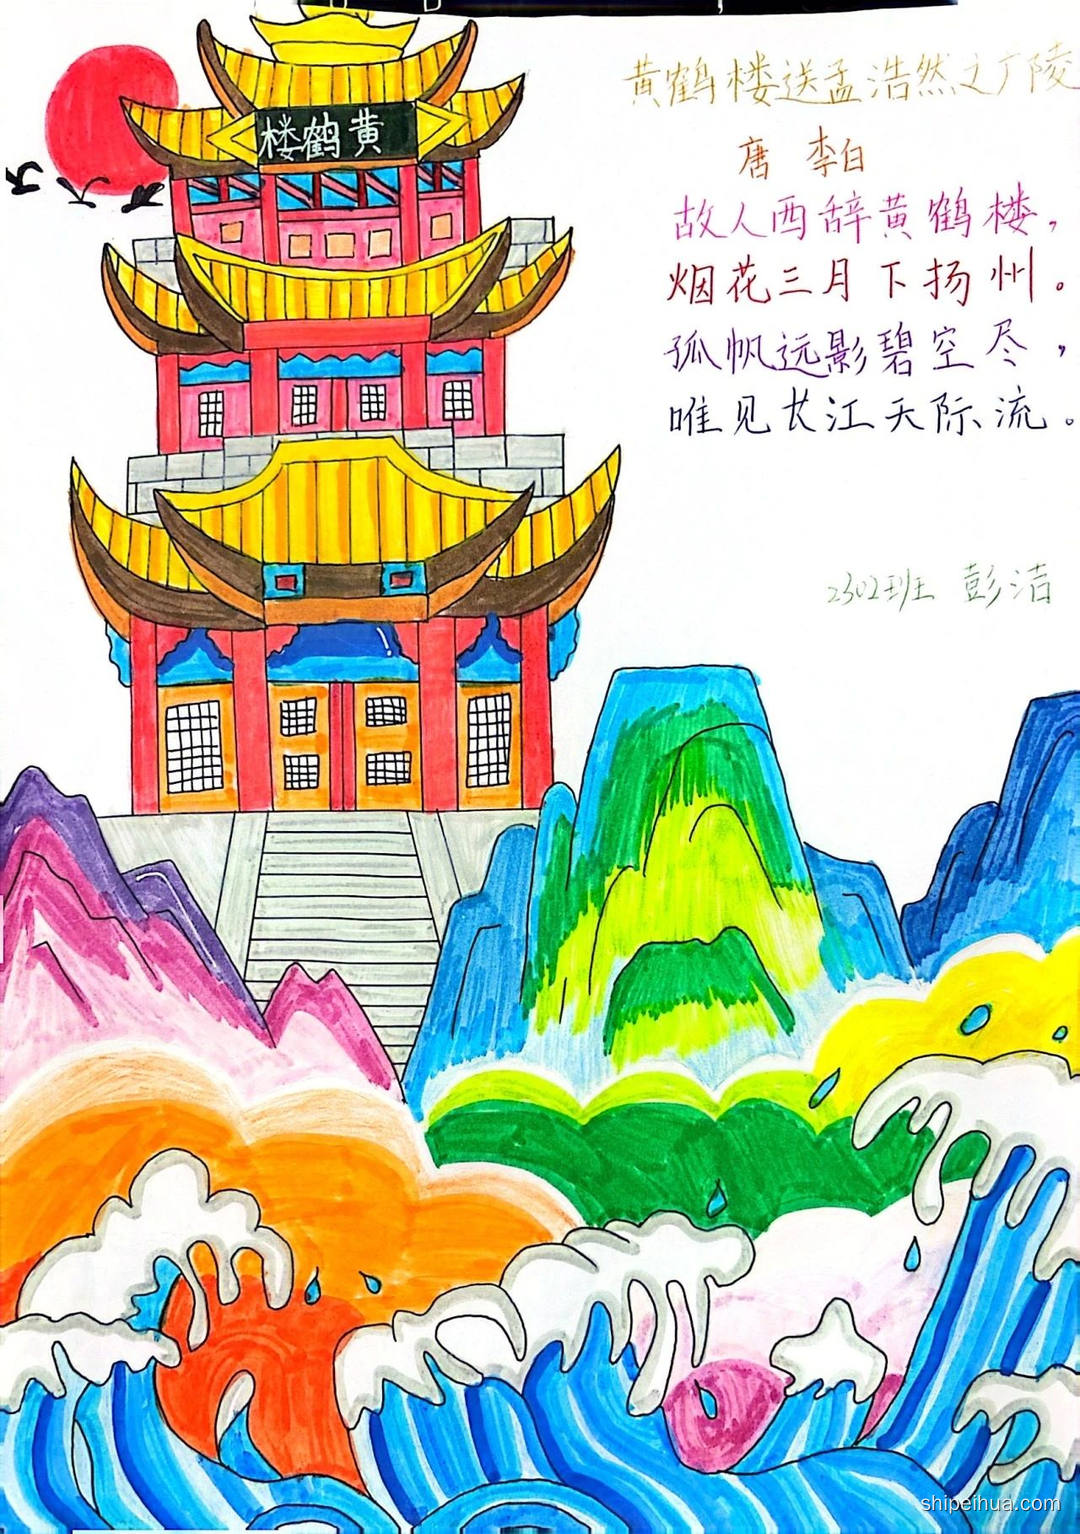 黄鹤楼送孟浩然之广陵
唐 李白
故人西辞黄鹤楼，
烟花三月下扬州。
孤帆远影碧空尽，
唯见长江天际流。
楼鹤黄
2302班 彭洁
shipeihua.com